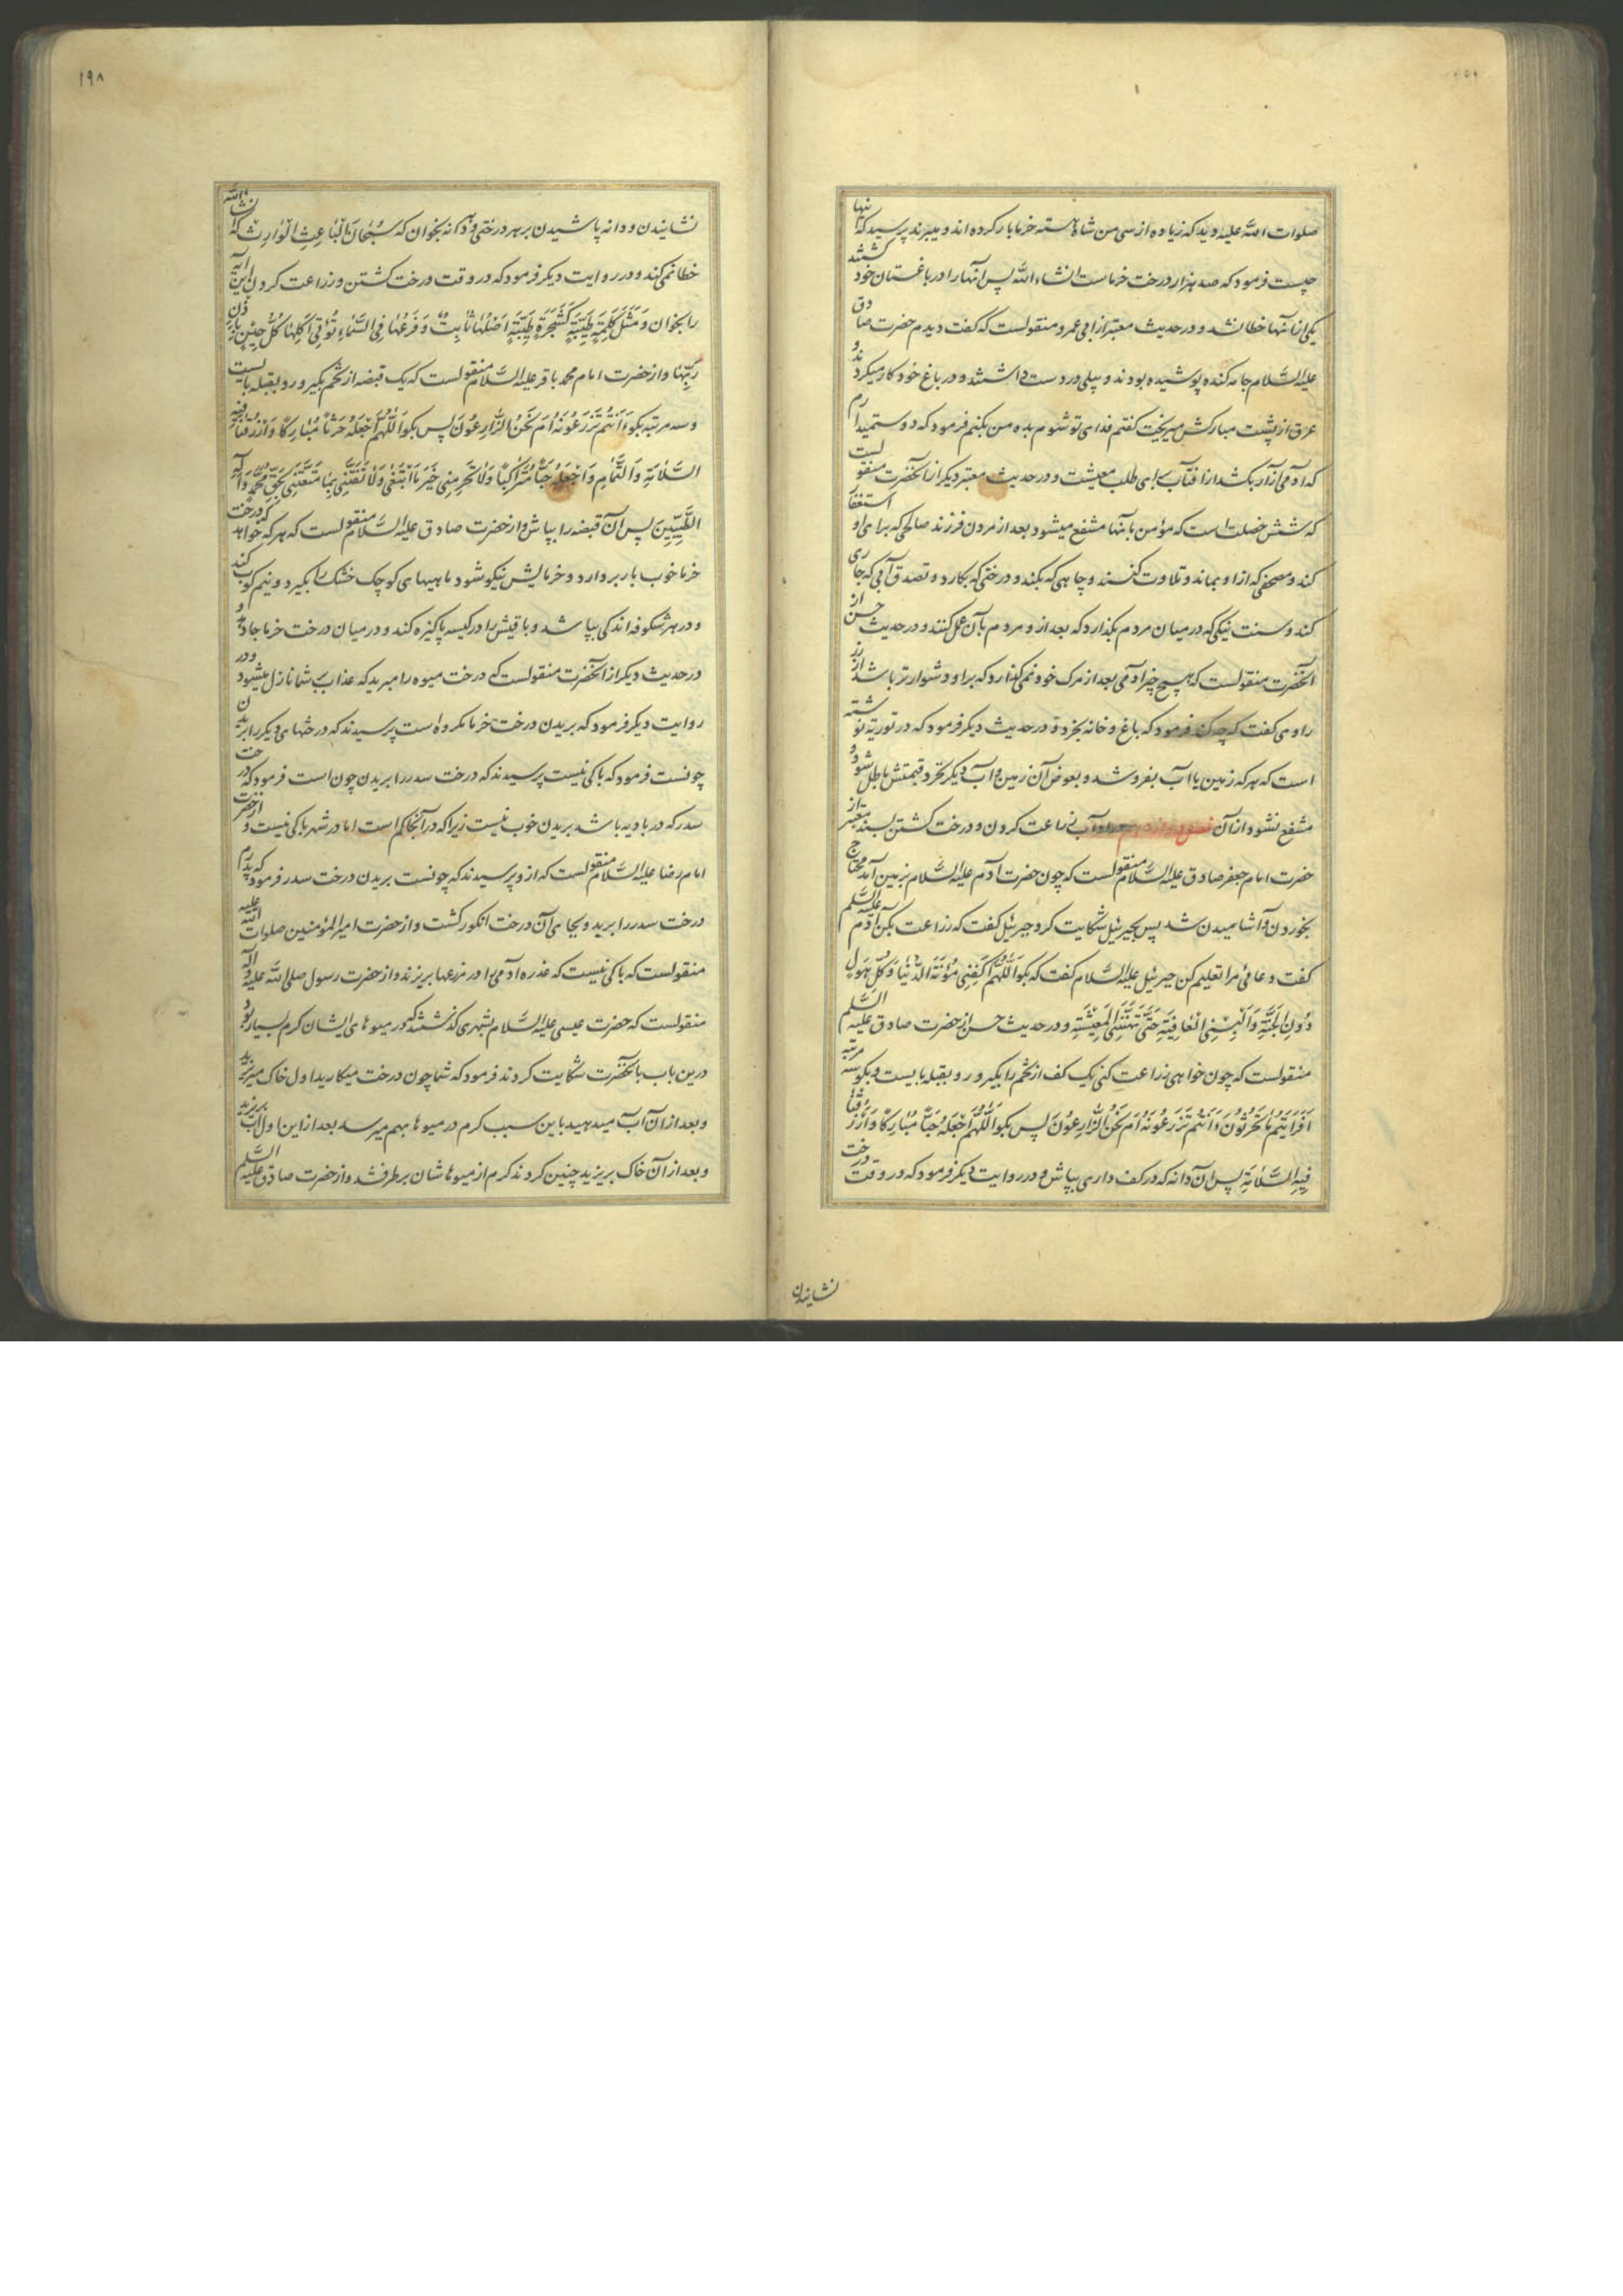 صلوات الله علیه دید که زیاده از سی من شاه هسته خرما بار کرده اند و میبرند پرسید که اینها
چیست فرمود که صد هزار درخت خرماست انشاء الله پس آنها را در باغستان خود کشتند
یکی از آنها خطا نشد و در حدیث معتبر از ابی عمرو منقولست که گفت دیدم حضرت صادق
علیه السلام جامه کنده پوشیده بودند و بیلی در دست داشتند و در باغ خود کار میکردند و
عرق از پشت مبارکش میریخت گفتم فدای تو شوم بده من بکنم فرمود که دوست میدارم
که آدمی آزار بکشد از آفتاب برای طلب معیشت و در حدیث معتبر دیگر از آنحضرت منقولست
که شش خصلت است که مؤمن بآنها منتفع میشود بعد از مردن فرزند صالحی که برای او استغفار
کند و مصحفی که از او بماند و تلاوت کنند و چاهی که بکند و درختی که بکارد و تصدق آبی که جاری
کند و سنت نیکی که در میان مردم بگذارد که بعد از و مردم بآن عمل کنند و در حدیث حسن از
آنحضرت منقولست که هیچ چیز آدمی بعد از مرگ خود نمی گذارد که بر او دشوارتر باشد از زر
راوی گفت که چه کند فرمود که باغ و خانه بخرد و در حدیث دیگر فرمود که در توریة نوشته
است که هر که زمین یا آب بفروشد و بعوض آن زمین و آب دیگر نخرد قیمتش باطل شود و
منتفع نشود از آن زراعت کردن و درخت کشتن بسند معتبر از
حضرت امام جعفر صادق علیه السلام منقولست که چون حضرت آدم علیه السلام بزمین آمد محتاج
بخوردن و آشامیدن شد پس بجبرئیل شکایت کرد جبرئیل گفت که زراعت بکن آدم علیه السلم
گفت دعائی مرا تعلیم کن جبرئیل علیه السلام گفت که بگو اَللّهُمَّ اکْفِنی مَؤُنَةَ الدُّنیا وَکُلَّ هَولٍ
دُونِ الجَنَّةِ وَاَلْبِسْنِی العافِیَةَ حَتّی تُهَنِّئَنِی المَعیشَةَ و در حدیث حسن از حضرت صادق علیه السلم
منقولست که چون خواهی زراعت کنی یک کف از تخم را بگیر و رو بقبله بایست و بگو سه مرتبه
اَفَرَاَیتُم ما تَحرُثُونَ ءَاَنتُم تَزرَعُونَهُ اَم نَحنُ الزّارِعُونَ پس بگو اَللّهُمَّ اجعَلهُ حَبّاً مُبارَکاً وَارزُقنا
فِیهِ السَّلامَةَ پس آن دانه که در کف داری بپاش و در روایت دیگر فرمود که در وقت درخت
نشانیدن
۱۹۸
نشانیدن و دانه پاشیدن بر هر درختی و دانه بخوان که سُبحانَ الباعِثِ الوارِث که انشاءالله
خطا نمی کند و در روایت دیگر فرمود که در وقت درخت کشتن و زراعت کردن این آیه
را بخوان وَ مَثَلُ کَلِمَةٍ طَیِّبَةٍ کَشَجَرَةٍ طَیِّبَةٍ اَصلُها ثابِتٌ وَ فَرعُها فِی السَّماءِ تُؤتِی اُکُلَها کُلَّ حِینٍ بِاِذنِ
رَبِّها و از حضرت امام محمد باقر علیه السلام منقولست که یک قبضه از تخم بگیر و رو بقبله بایست
و سه مرتبه بگو ءَاَنتُم تَزرَعُونَهُ اَم نَحنُ الزّارِعُونَ پس بگو اَللّهُمَّ اجعَلهُ حَرثاً مُبارَکاً وَارزُقنا فِیهِ
السَّلامَةَ وَالتَّمامَ وَاجعَلهُ حَبّاً مُتَراکِباً وَلا تَحرِمنِی خَیرَ ما اَبتَغِی وَلا تَفتِنّی بِما مَتَّعتَنِی بِحَقِّ مُحَمَّدٍ وَآلِهِ
الطَّیِّبِینَ پس آن قبضه را بپاش و از حضرت صادق علیه السلام منقولست که هر که خواهد که درخت
خرما خوب بار بردارد و خرمایش نیکو شود ماهیهای کوچک خشک را بگیرد و نیم کوب کند
و در هر شکوفه اندکی بپاشد و باقیش را در کیسه پاکیزه کند و در میان درخت خرما جا دهد و
در حدیث دیگر از آنحضرت منقولست که درخت میوه را مبرید که عذاب بر شما نازل میشود و در
روایت دیگر فرمود که بریدن درخت خرما مکروه است پرسیدند که درختهای دیگر را بریدن
چونست فرمود که باکی نیست پرسیدند که درخت سدر را بریدن چون است فرمود که درخت
سدر که در بادیه باشد بریدن خوب نیست زیرا که در آنجا کم است اما در شهر باکی نیست و از حضرت
امام رضا علیه السلام منقولست که ازو پرسیدند که چونست بریدن درخت سدر فرمود که پدرم
درخت سدر را برید و بجای آن درخت انگور کشت و از حضرت امیرالمؤمنین صلوات الله علیه
منقولست که باکی نیست که عذره آدمی را در مزرعها بریزند و از حضرت رسول صلی الله علیه وآله
منقولست که حضرت عیسی علیه السلام بشهری گذشتند که در میوهای ایشان کرم بسیار بود و
درین باب بآنحضرت شکایت کردند فرمود که شما چون درخت میکارید اول خاک میریزید
و بعد از آن آب میدهید باین سبب کرم در میوها بهم میرسد بعد از این اول آب بریزید
و بعد از آن خاک بریزید چنین کردند کرم از میوهاشان برطرف شد و از حضرت صادق علیه السلم